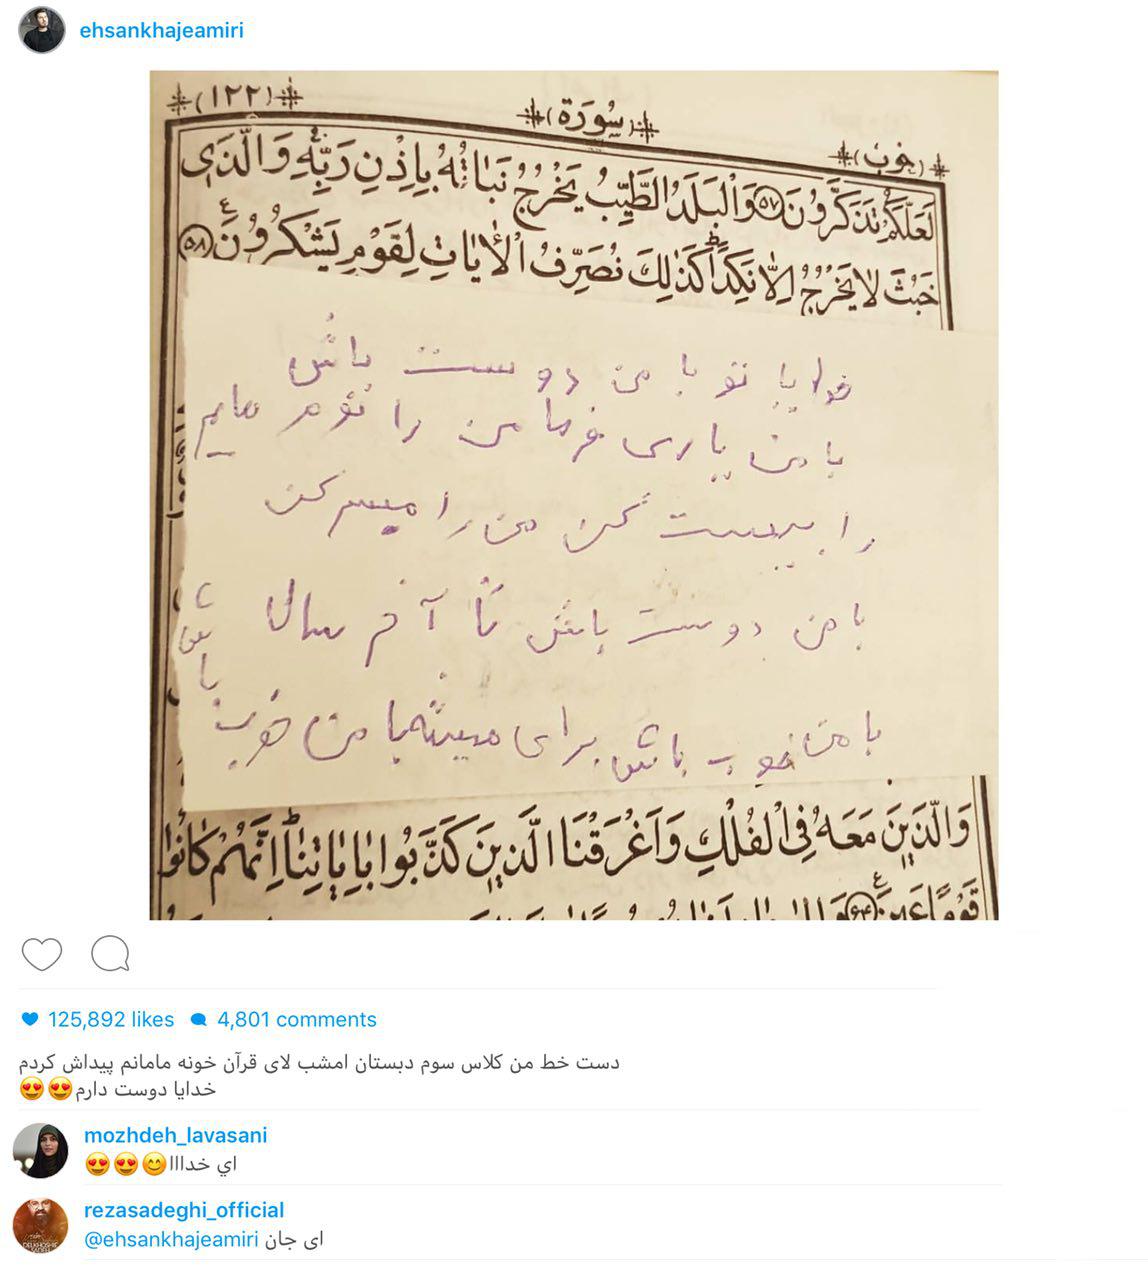 ehsankhajeamiri
(۱۲۲)
(سُورَة)
لَعَلَّكُمْ تَذَكَّرُونَ ﴿۵۷﴾ وَالْبَلَدُ الطَّيِّبُ يَخْرُجُ نَبَاتُهُ بِإِذْنِ رَبِّهِ وَالَّذِي
خَبُثَ لَا يَخْرُجُ إِلَّا نَكِدًا كَذَٰلِكَ نُصَرِّفُ الْآيَاتِ لِقَوْمٍ يَشْكُرُونَ ﴿۵۸﴾
خدایا تو با من دوست باش
با من یاری فرما من را
را بیست کن من را میسر کن
با من دوست باش تا آخر سال
با من خوب باش برای میشه با من خوب باش
وَالَّذِينَ مَعَهُ فِي الْفُلْكِ وَأَغْرَقْنَا الَّذِينَ كَذَّبُوا بِآيَاتِنَا إِنَّهُمْ كَانُوا
قَوْمًا عَمِينَ ﴿۶۴﴾
125,892 likes 4,801 comments
دست خط من کلاس سوم دبستان امشب لای قرآن خونه مامانم پیداش کردم
خدایا دوست دارم😍😍
mozhdeh_lavasani
اي خدااا😊😍😍
rezasadeghi_official
@ehsankhajeamiri ای جان